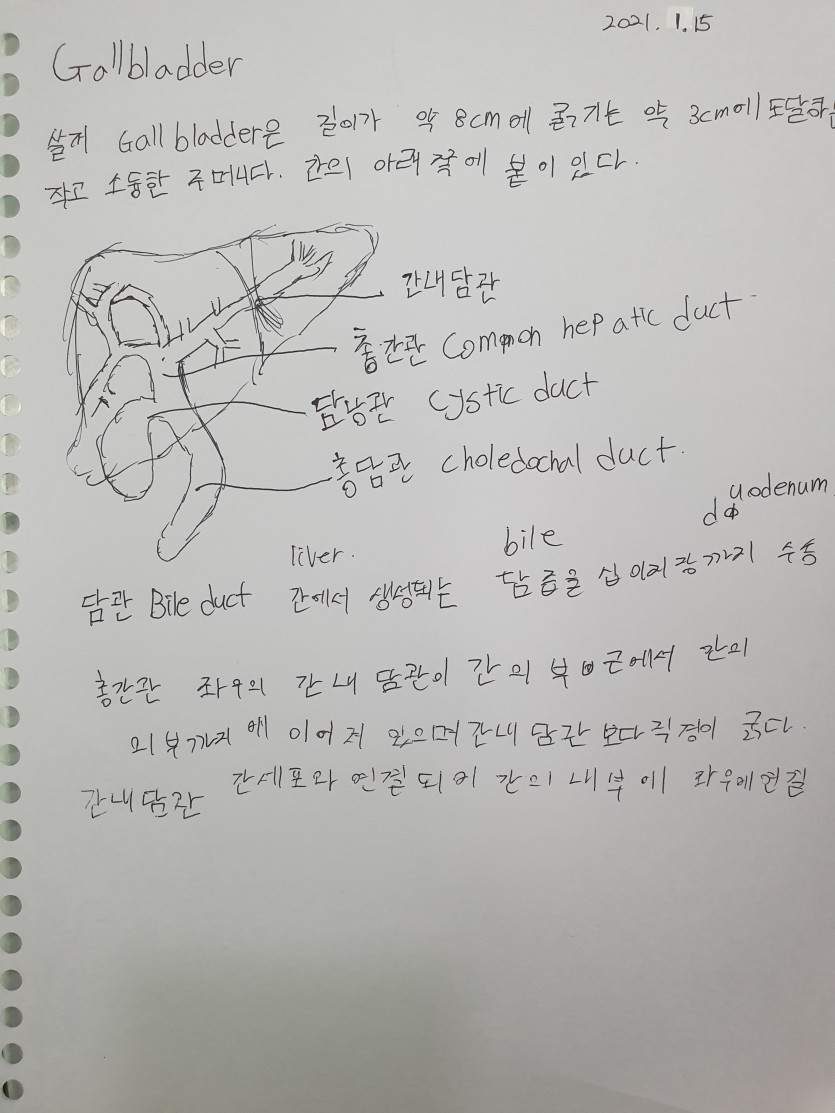 2021. 1.15
Gallbladder
쓸개 Gall bladder은 길이가 약 8cm에 굵기는 약 3cm에 도달하는
작고 소듕한 주머니다. 간의 아래쪽에 붙어 있다.
간내담관
총간관 Common hepatic duct
담낭관 cystic duct
총담관 choledochal duct.
duodenum
liver. bile
담관 Bile duct 간에서 생성되는 담즙을 십이지장까지 수송
총간관 좌우의 간내 담관이 간의 부근에서 간의
외부까지 이어져 있으며 간내 담관 보다 직경이 굵다.
간내담관 간세포와 연결되어 간의 내부에 좌우에 연결